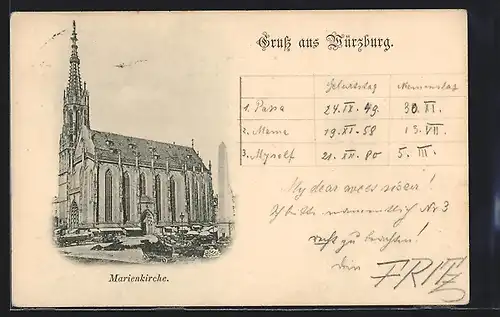 Gruß aus Würzburg.
Geburtstag Namenstag
1. Papa 24. IX. 49. 30. XI.
2. Mama 19. XI. 58 13. VII.
3. Myself 21. XII. 80 5. III.
My dear
Ich bitte namentlich Nr 3
recht zu beachten!
Dein FRITZ
Marienkirche.